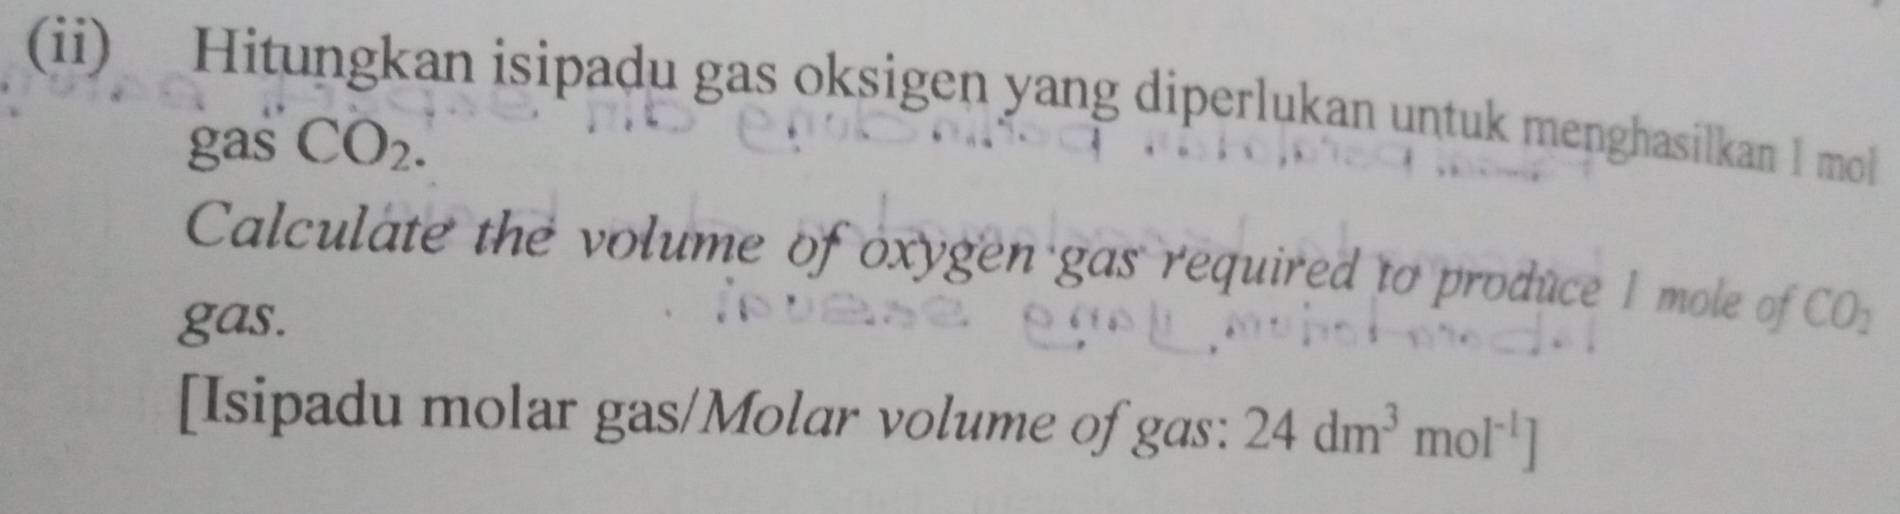 (ii) Hitungkan isipadu gas oksigen yang diperlukan untuk menghasilkan 1 mol
gas CO₂.
Calculate the volume of oxygen gas required to produce 1 mole of CO₂
gas.
[Isipadu molar gas/Molar volume of gas: 24 dm³ mol⁻¹]